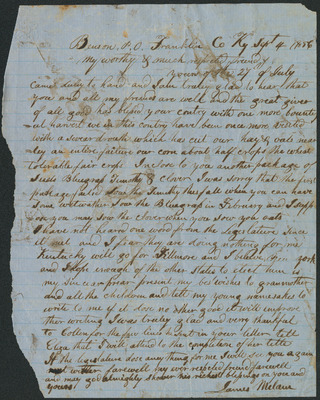 Benson P.O. Franklin Co Ky Sept 4 1856
My worthy & much respected friend
Yours of the 27 of July
Came duly to hand and I am truly glad to hear that
you and all my friends are well and the great giver
of all good has blessd your contry with one more bounty
we in this contry have been once more visited
with a severe drouth which has cut our hay & oats near
ly an entire failure our corn about half crops the wheat
tolerable fair crops Inclose to you another package of
Seeds Bluegrass Timothy & Clover I was sorry that the first
package failed Sow the Timothy this fall when you can have
some wet weather Sow the Bluegrass in February and I supp
ose you may Sow the clover when you Sow you oats
I have not heard one word from the Legislature Since
it met and I fear they are doing nothing for me
Kentucky will go for Fillmore and I believe you york
and I hope enough of the other States to elect him is
my Sincear prair present my best wishes to grandmother
and all the children and tell my young namesake to
write to me if it does no other good it will improve
their writing I was truley glad and very thankful
to Collen for the few lines he put in your letter tell
Eliza that I will attend to the completion of her title
If the legislature does anything for me I will see you again
farewell my ever respected friend farewell
and may god almighty shower his richest blessings on you and
yours
James Melane